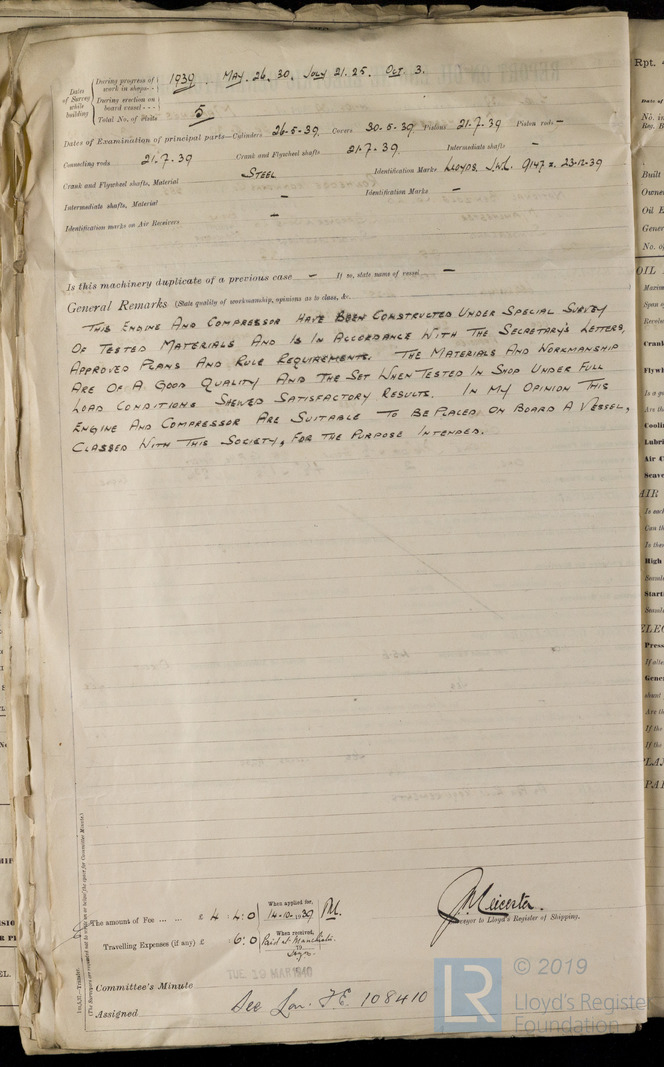 Dates of Survey while building
During progress of work in shops - - 1939. MAY. 26. 30. JULY 21. 25. OCT 3.
During erection on board vessel - - -
Total No. of visits 5
Dates of Examination of principal parts—Cylinders 26-5-39. Covers 30-5-39. Pistons 21-7-39 Piston rods —
Connecting rods 21-7-39 Crank and Flywheel shafts 21-7-39. Intermediate shafts —
Crank and Flywheel shafts, Material STEEL Identification Marks LLOYDS,
Intermediate shafts, Material — Identification Marks —
Identification marks on Air Receivers —
Is this machinery duplicate of a previous case — If so, state name of vessel —
General Remarks (State quality of workmanship, opinions as to class, &c.
THIS ENGINE AND COMPRESSOR HAVE BEEN CONSTRUCTED UNDER SPECIAL SURVEY
OF TESTED MATERIALS AND IS IN ACCORDANCE WITH THE SECRETARY'S LETTERS,
APPROVED PLANS AND RULE REQUIREMENTS. THE MATERIALS AND WORKMANSHIP
ARE OF A GOOD QUALITY AND THE SET WHEN TESTED IN SHOP UNDER FULL
LOAD CONDITIONS SHEWED SATISFACTORY RESULTS. IN MY OPINION THIS
ENGINE AND COMPRESSOR ARE SUITABLE TO BE PLACED ON BOARD A VESSEL,
CLASSED WITH THIS SOCIETY, FOR THE PURPOSE INTENDED.
The amount of Fee ... ... £ 4 : 4 : 0 When applied for, 14-10-1939
Travelling Expenses (if any) £ : 6 : 0 When received,
Surveyor to Lloyd's Register of Shipping.
TUE 19 MAR 1940
Committee's Minute
Assigned See Lon. F.E. 108410
© 2019
Lloyd's Register
Foundation